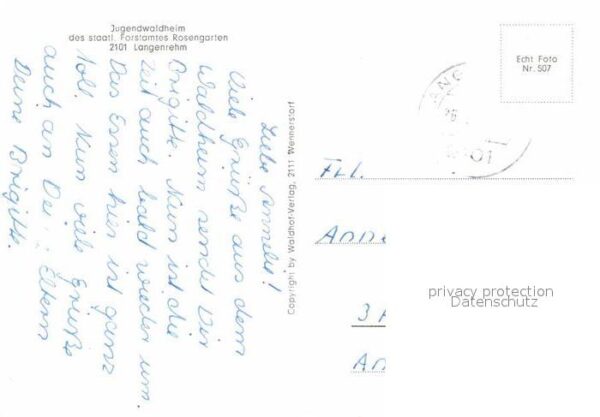 Jugendwaldheim
des staatl. Forstamtes Rosengarten
2101 Langenrehm
Liebe Annelie!
Viele Grüße aus dem
Waldheim sendet Dir
Brigitte. Nun ist die
Zeit auch bald wieder um.
Das Essen hier ist ganz
toll. Nun viele Grüße
auch an Deine Eltern
Deine Brigitte.
Copyright by Waldhof-Verlag, 2111 Wennerstorf
Echt Foto
Nr. 507
Frl.
Anne
3
An
privacy protection
Datenschutz